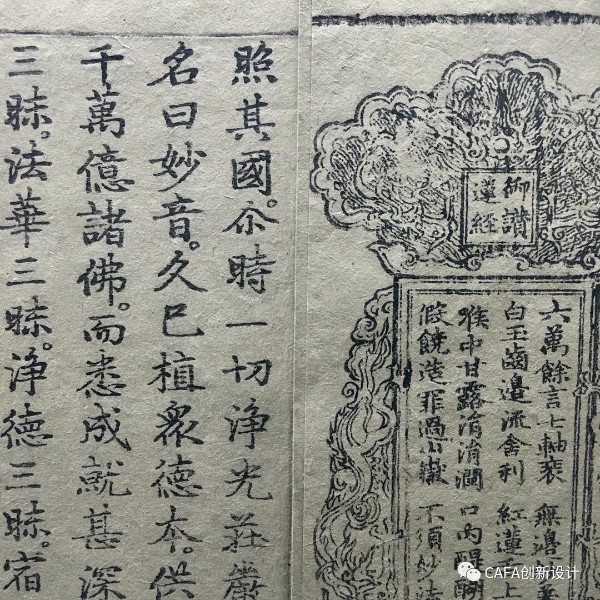 御讚
蓮經
六萬餘言七軸裝 無邊
白玉齒邊流舍利 紅蓮上
喉中甘露涓涓潤 口內醍醐
假饒造罪過山嶽 不須妙法
照其國。尒時一切淨光莊嚴
名曰妙音。久已植衆德本。供
千萬億諸佛。而悉成就甚深
三昧。法華三昧。淨德三昧。宿
CAFA创新设计